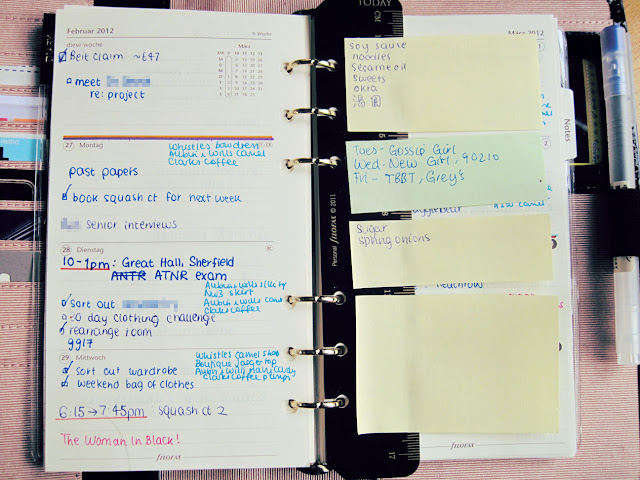 Februar 2012
9. Woche
diese woche
März
Belt claim ~£47
meet
re: project
27 Montag
Whistles bow dress
Aubin & Wills camel
Clarks coffee
past papers
book squash ct for next week
senior interviews
28 Dienstag
10-1pm: Great Hall, Sherfield
ANTR ATNR exam
Aubin & Wills silk top
No3 skirt
Aubin & Wills
Clarks coffee
sort out
30 day clothing challenge
rearrange room
9917
29 Mittwoch
Whistles camel
Boutique Jaeger top
Aubin & Wills
Clarks coffee pumps
sort out wardrobe
weekend bag of clothes
6:15→7:45pm squash ct 2
The Woman In Black!
filofax
TODAY
CM
Personal filofax © 2011
17
soy sauce
noodles
sesame oil
sweets
okra
Tues - Gossip Girl
Wed - New Girl, 90210
Fri - TBBT, Grey's
sugar
spring onions
März 2012
Notes
filofax